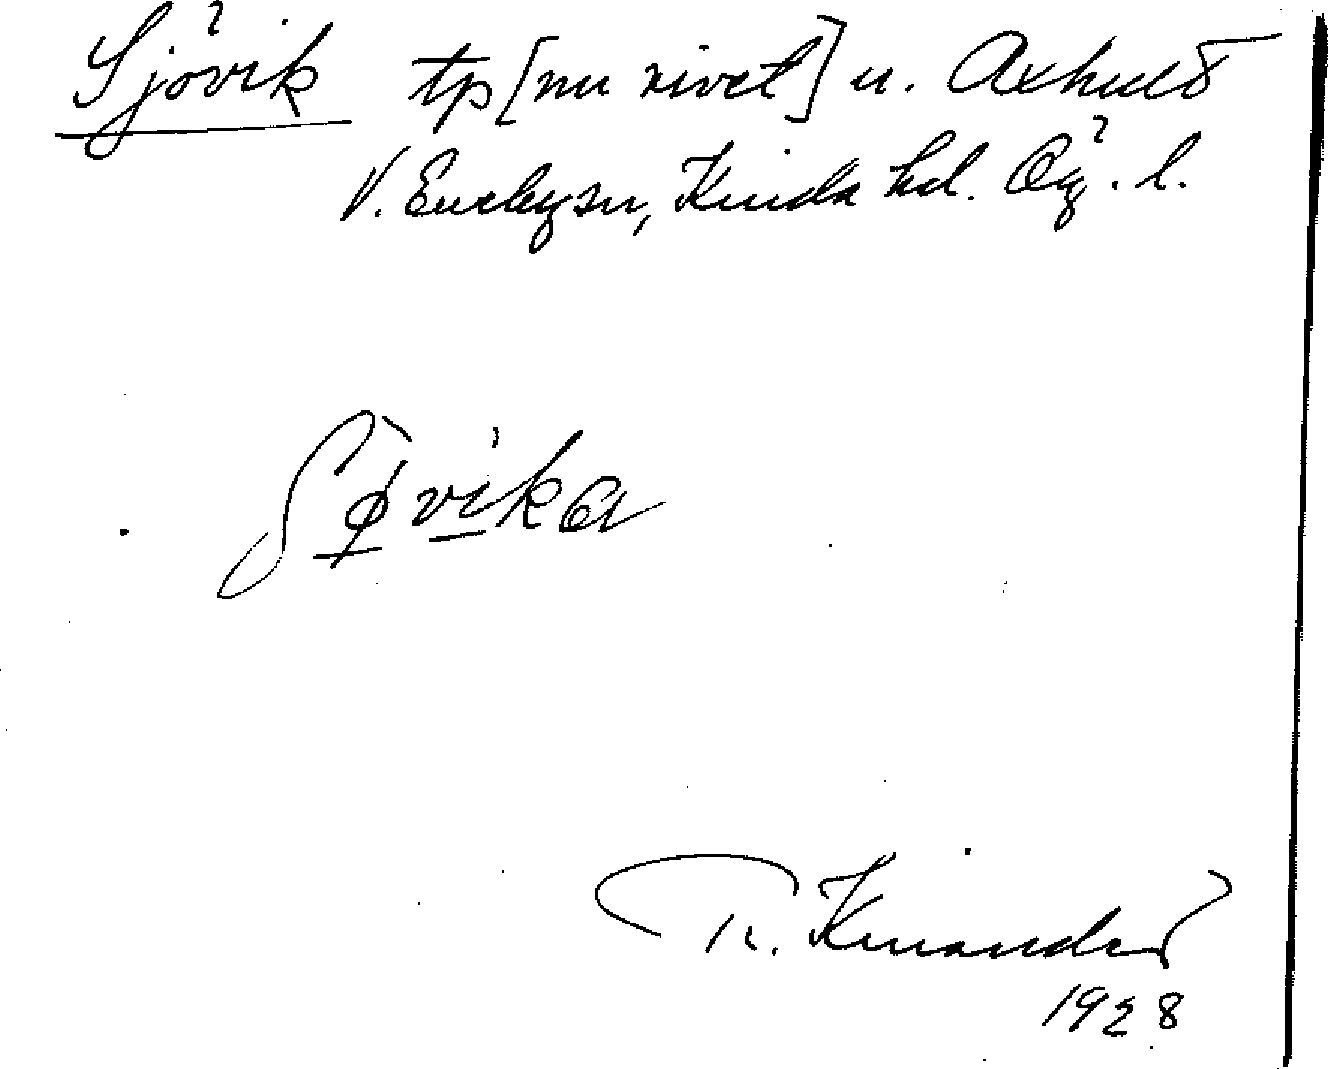 Sjövik tp [nu rivet] u. Axhult
V. Eneby sn, Kinda hd. Ög. l.
Søvika
R. Kinander
1928